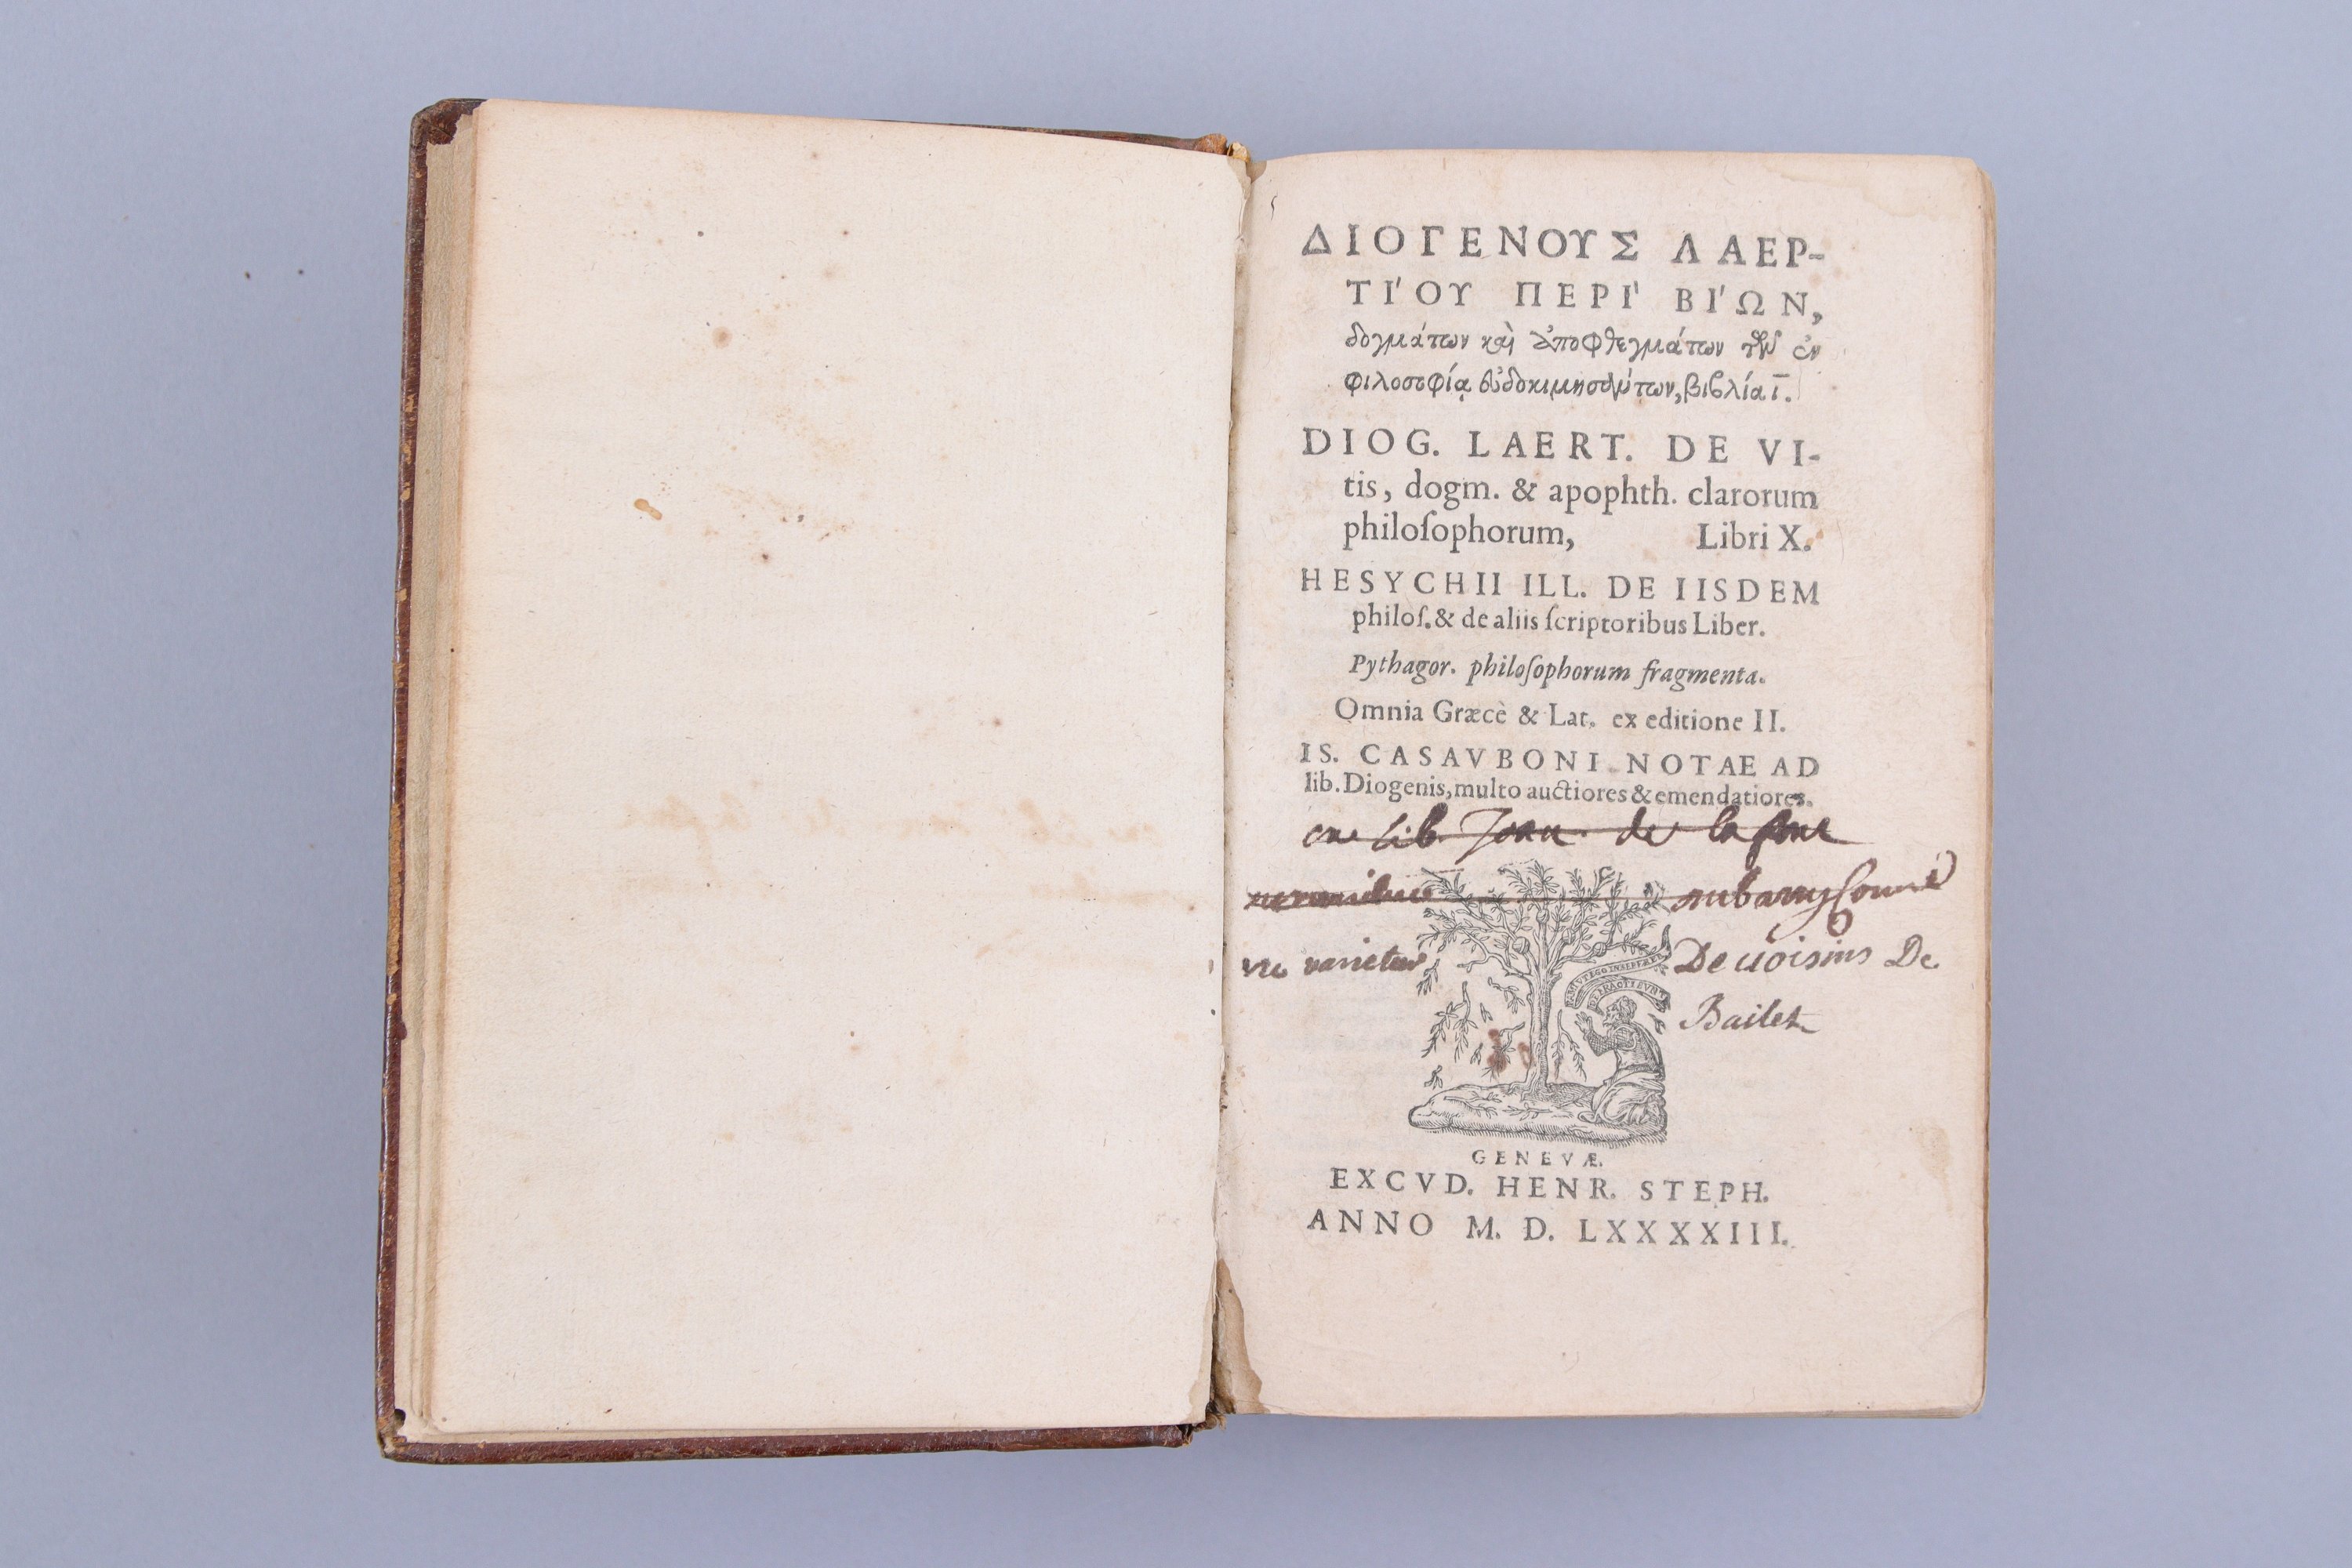 ΔΙΟΓΕΝΟΥΣ ΛΑΕΡ-
ΤΙ'ΟΥ ΠΕΡΙ` ΒΙ'ΩΝ,
δογμάτων καὶ ἀποφθεγμάτων τῶν ἐν
φιλοσοφίᾳ εὐδοκιμησάντων, βιβλία ι.
DIOG. LAERT. DE VI-
tis, dogm. & apophth. clarorum
philoſophorum, Libri X.
HESYCHII ILL. DE IISDEM
philoſ. & de aliis ſcriptoribus Liber.
Pythagor. philoſophorum fragmenta.
Omnia Græcè & Lat. ex editione II.
IS. CASAVBONI NOTAE AD
lib. Diogenis, multo auctiores & emendatiores.
ex lib. Joan. de la
ne varietur De uoisins De
Bailet
GENEVÆ.
EXCVD. HENR. STEPH.
ANNO M. D. LXXXXIII.